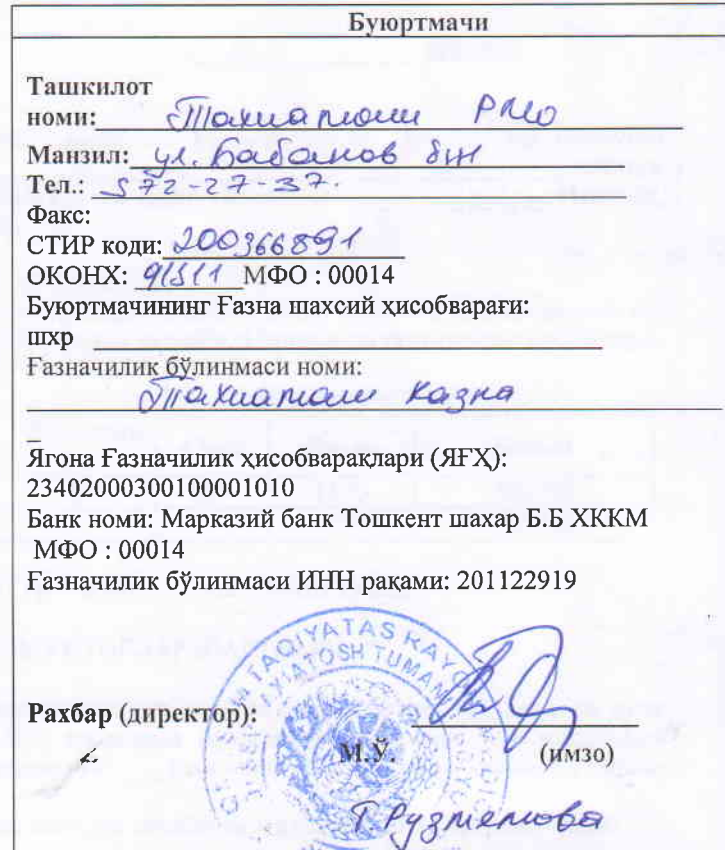 Буюртмачи
Ташкилот
номи: Тахиатош РМО
Манзил: ул. Бабанов б/н
Тел.: 572-27-37.
Факс:
СТИР коди: 200366891
ОКОНХ: 91511 МФО : 00014
Буюртмачининг Ғазна шахсий ҳисобварағи:
шхр
Ғазначилик бўлинмаси номи:
Тахиатош казна
Ягона Ғазначилик ҳисобварақлари (ЯҒҲ):
23402000300100001010
Банк номи: Марказий банк Тошкент шахар Б.Б ХККМ
МФО : 00014
Ғазначилик бўлинмаси ИНН рақами: 201122919
TAQIYATAS RAYO
TOSH TUMAN
Рахбар (директор):
М.Ў. (имзо)
Т Рузметова